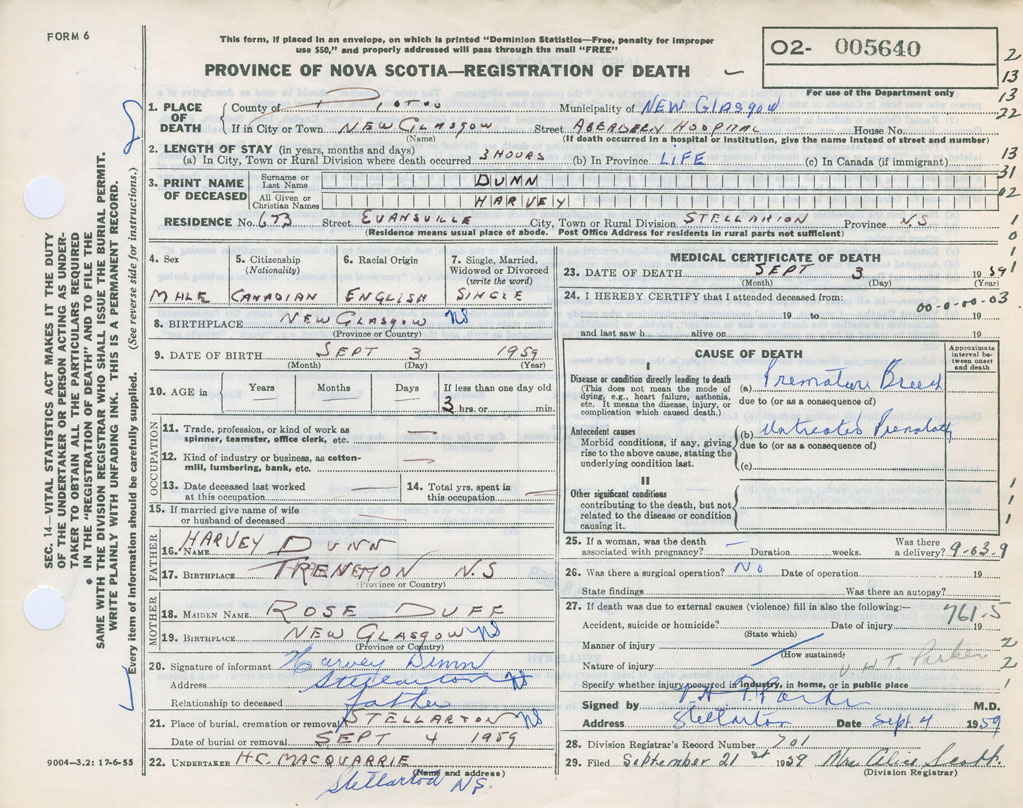 FORM 6
This form, if placed in an envelope, on which is printed "Dominion Statistics—Free, penalty for improper
use $50," and properly addressed will pass through the mail "FREE"
PROVINCE OF NOVA SCOTIA—REGISTRATION OF DEATH
O2- 005640
For use of the Department only
2
13
13
22
13
31
02
1
0
1
SEC. 14—VITAL STATISTICS ACT MAKES IT THE DUTY
OF THE UNDERTAKER OR PERSON ACTING AS UNDER-
TAKER TO OBTAIN ALL THE PARTICULARS REQUIRED
IN THE "REGISTRATION OF DEATH" AND TO FILE THE
SAME WITH THE DIVISION REGISTRAR WHO SHALL ISSUE THE BURIAL PERMIT.
WRITE PLAINLY WITH UNFADING INK. THIS IS A PERMANENT RECORD.
Every item of information should be carefully supplied. (See reverse side for instructions.)
1. PLACE OF DEATH
County of Pictou Municipality of NEW GLASGOW
If in City or Town NEW GLASGOW Street ABERDEEN HOSPITAL House No.
(Name) (If death occurred in a hospital or institution, give the name instead of street and number)
2. LENGTH OF STAY (in years, months and days)
(a) In City, Town or Rural Division where death occurred 3 HOURS (b) In Province LIFE (c) In Canada (if immigrant)
3. PRINT NAME OF DECEASED
Surname or Last Name DUNN
All Given or Christian Names HARVEY
RESIDENCE No. 67B Street EVANSVILLE City, Town or Rural Division STELLARTON Province N.S
(Residence means usual place of abode. Post Office Address for residents in rural parts not sufficient)
4. Sex 5. Citizenship (Nationality) 6. Racial Origin 7. Single, Married, Widowed or Divorced (write the word)
MALE CANADIAN ENGLISH SINGLE
8. BIRTHPLACE NEW GLASGOW NS
(Province or Country)
9. DATE OF BIRTH SEPT 3 1959
(Month) (Day) (Year)
10. AGE in Years Months Days If less than one day old
3 hrs. or min.
OCCUPATION
11. Trade, profession, or kind of work as
spinner, teamster, office clerk, etc. —
12. Kind of industry or business, as cotton-
mill, lumbering, bank, etc. —
13. Date deceased last worked
at this occupation
14. Total yrs. spent in
this occupation
15. If married give name of wife
or husband of deceased
FATHER
16. NAME HARVEY DUNN
17. BIRTHPLACE TRENTON N.S
(Province or Country)
MOTHER
18. MAIDEN NAME ROSE DUFF
19. BIRTHPLACE NEW GLASGOW NS
(Province or Country)
20. Signature of informant Harvey Dunn
Address Stellarton NS
Relationship to deceased father
21. Place of burial, cremation or removal STELLARTON NS
Date of burial or removal SEPT 4 1959
22. UNDERTAKER H.C. MACQUARRIE
(Name and address)
Stellarton NS.
9004—3.2: 17-6-55
MEDICAL CERTIFICATE OF DEATH
23. DATE OF DEATH SEPT 3 1959
(Month) (Day) (Year)
24. I HEREBY CERTIFY that I attended deceased from:
00-0-00-03
19 to 19
and last saw h alive on 19
CAUSE OF DEATH
Approximate interval between onset and death
I
Disease or condition directly leading to death
(This does not mean the mode of
dying, e.g., heart failure, asthenia,
etc. It means the disease, injury, or
complication which caused death.)
(a) Premature Breech
due to (or as a consequence of)
Antecedent causes
Morbid conditions, if any, giving
rise to the above cause, stating the
underlying condition last.
(b) Untreated
due to (or as a consequence of)
(c)
II
Other significant conditions
contributing to the death, but not
related to the disease or condition
causing it.
1
1
1
25. If a woman, was the death
associated with pregnancy? — Duration weeks. Was there
a delivery? 9-63.9
26. Was there a surgical operation? No Date of operation 19
State findings Was there an autopsy?
27. If death was due to external causes (violence) fill in also the following:—
761.5
Accident, suicide or homicide? Date of injury 19
(State which)
Manner of injury 2
(How sustained)
Nature of injury V. H T. Parker 2
Specify whether injury occurred in industry, in home, or in public place 1
Signed by V. H T. Parker M.D.
Address Stellarton Date Sept. 4 1959
28. Division Registrar's Record Number 701
29. Filed September 21st 1959 Mrs. Alice Scott
(Division Registrar)